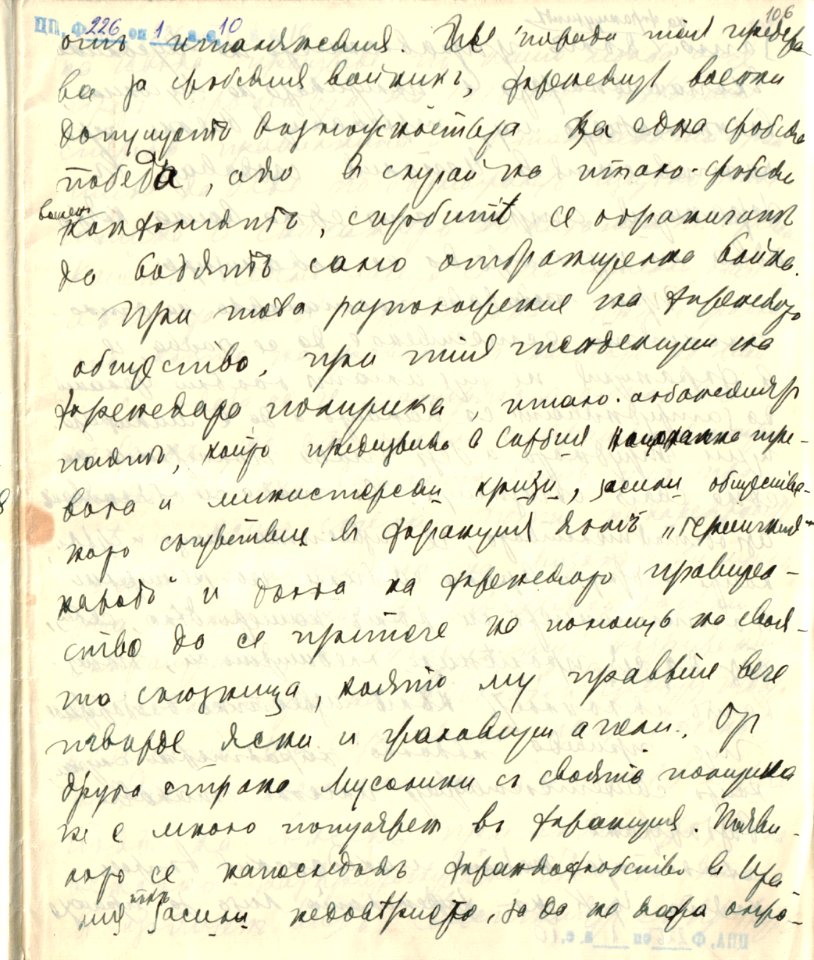 ЦПА, Ф. 226 оп 1 а.е. 10
106
отъ италиянския. Не поради тия предста-
ва за сръбския войникъ, френските военни
допущатъ възможностьта за една сръбска
победа, ако в случай на итало-сръбски
военен
конфликтъ, сърбите се ограничатъ
да водятъ само отбранителна война.
При това разположение на френското
общество, при тия тенденции на
френската политика, итало-албанския
пактъ, който предизвика в Сърбия тре-
вога и министерски кризи, засили обществе-
ното съчувствие въ Франция къмъ „героичния
народъ" и докара френското правител-
ство да се притече на помощь на своя-
та съюзница, която му правѣше вече
твърде ясни и апели. От
друга страна Мусолини съ своята политика
не е много популяренъ въ Франция. Появи-
лото се напоследъкъ франкофобство въ Ита-
лия засили недоверието, за да не кара